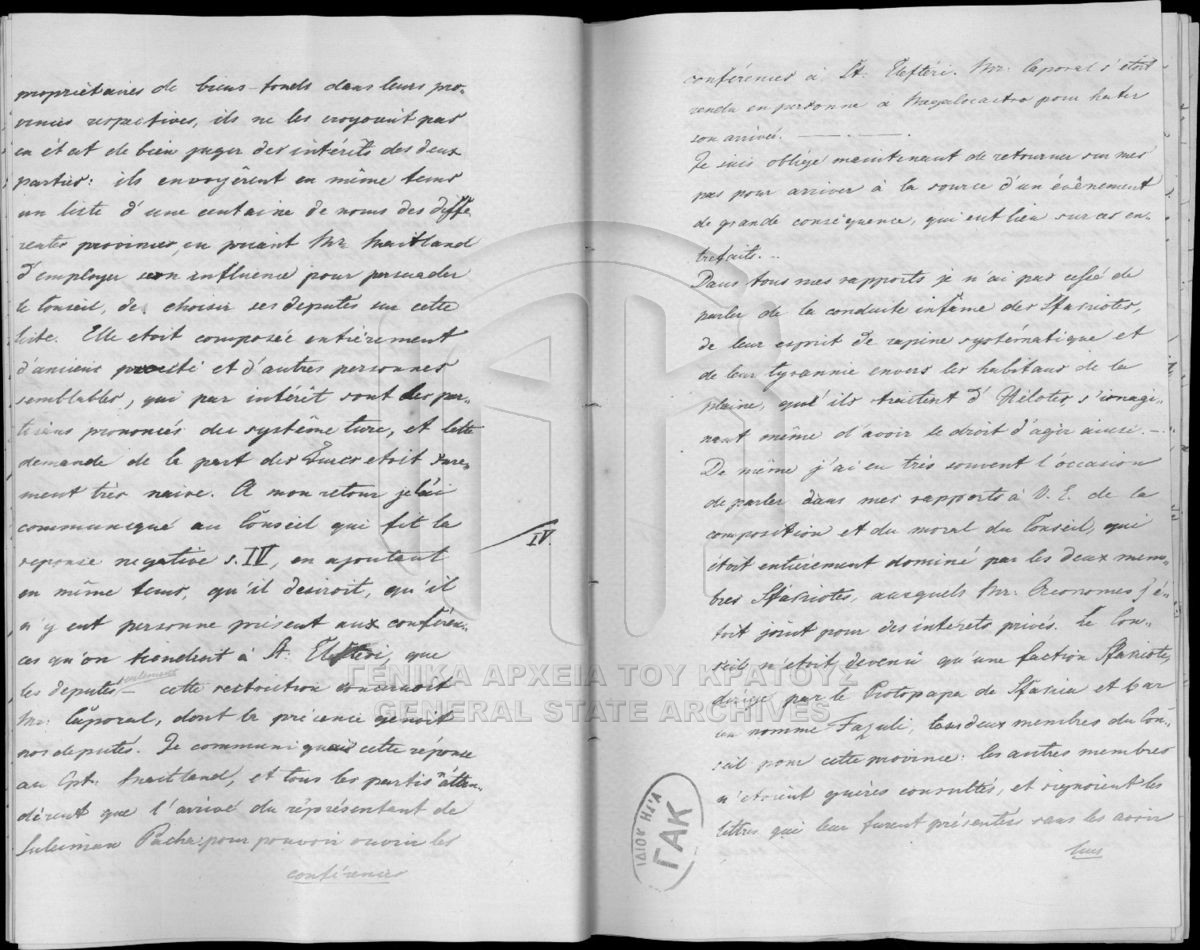 propriétaires de biens-fonds dans leurs pro-
vinces respectives, ils ne les croyoient pas
en état de bien juger des intérêts des deux
parties: ils envoyèrent en même tems
un liste d'une centaine de noms des diffé-
rentes provinces, en priant Mr. Maitland
d'employer son influence pour persuader
le Conseil, de choisir ses deputés sur cette
liste. Elle etoit composée entièrement
d'anciens et d'autres personnes
semblables, qui par intérêt sont des par-
tisans prononcés du système turc, et cette
demande de la part des Turcs etoit sure-
ment très naive. A mon retour je l'ai
communiqué au Conseil qui fit la
reponse negative s. IV, en ajoutant
en même tems, qu'il desiroit, qu'il
n'y eut personne présent aux conféren-
ces qu'on tiendrait à St. Elefteri, que
les deputés seulement – cette restriction concernoit
Mr. Caporal, dont la présence genoit
nos deputés. Je communiquais cette réponse
au Cpt. Maitland, et tous les partis n'atten-
dirent que l'arrivé du réprésentant de
Suleiman Pacha pour pouvoir ouvrir les
conférences
IV.
conférences à St. Elefteri. Mr. Caporal s'étoit
rendu en personne à Megalocastro pour hater
son arrivée. — — .
Je suis obligé maintenant de retourner sur mes
pas pour arriver à la source d'un évènement
de grande conséquence, qui eut lieu sur ces en-
trefaits. ..
Dans tous mes rapports je n'ai pas cessé de
parler de la conduite infâme des Sfakiotes,
de leur esprit de rapine systématique et
de leur tyrannie envers les habitans de la
plaine, qu'ils traitent d'Hélotes, s'imagi-
nant même d'avoir le droit d'agir ainsi. –
De même j'ai eu très souvent l'occasion
de parler dans mes rapports à V. E. de la
composition et du moral du Conseil, qui
étoit entièrement dominé par les deux mem-
bres Sfakiotes, auxquels Mr. Oeconomes s'é-
toit joint pour des interets privés. Le Con-
seil n'etoit devenû qu'une faction Sfakiote,
dirigé par le Protopapa de Sfakia et par
un nommé Fazuli, tous deux membres du Con-
seil pour cette province: les autres membres
n'etoient guères consultés, et signoient les
lettres qui leur furent présentées sans les avoir
lues
ΓΕΝΙΚΑ ΑΡΧΕΙΑ ΤΟΥ ΚΡΑΤΟΥΣ
GENERAL STATE ARCHIVES
ΓΑΚ